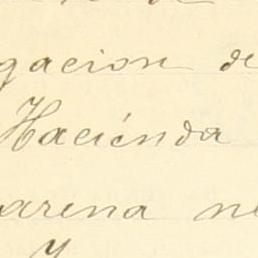 gacion de
Haciénda
arena n
y